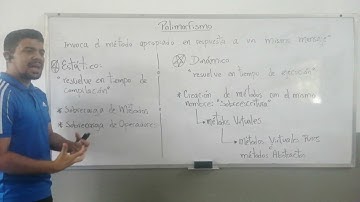 Polimorfismo
invoca el método apropiado en respuesta a un mismo mensaje
Estático:
"resuelve en tiempo de
compilación"
* Sobrecarga de Métodos
* Sobrecarga de Operadores
Dinámico
"resuelve en tiempo de ejecución"
* Creación de métodos con el mismo
nombres "Sobreescritura"
métodos Virtuales
métodos Virtuales Puros
métodos Abstractos